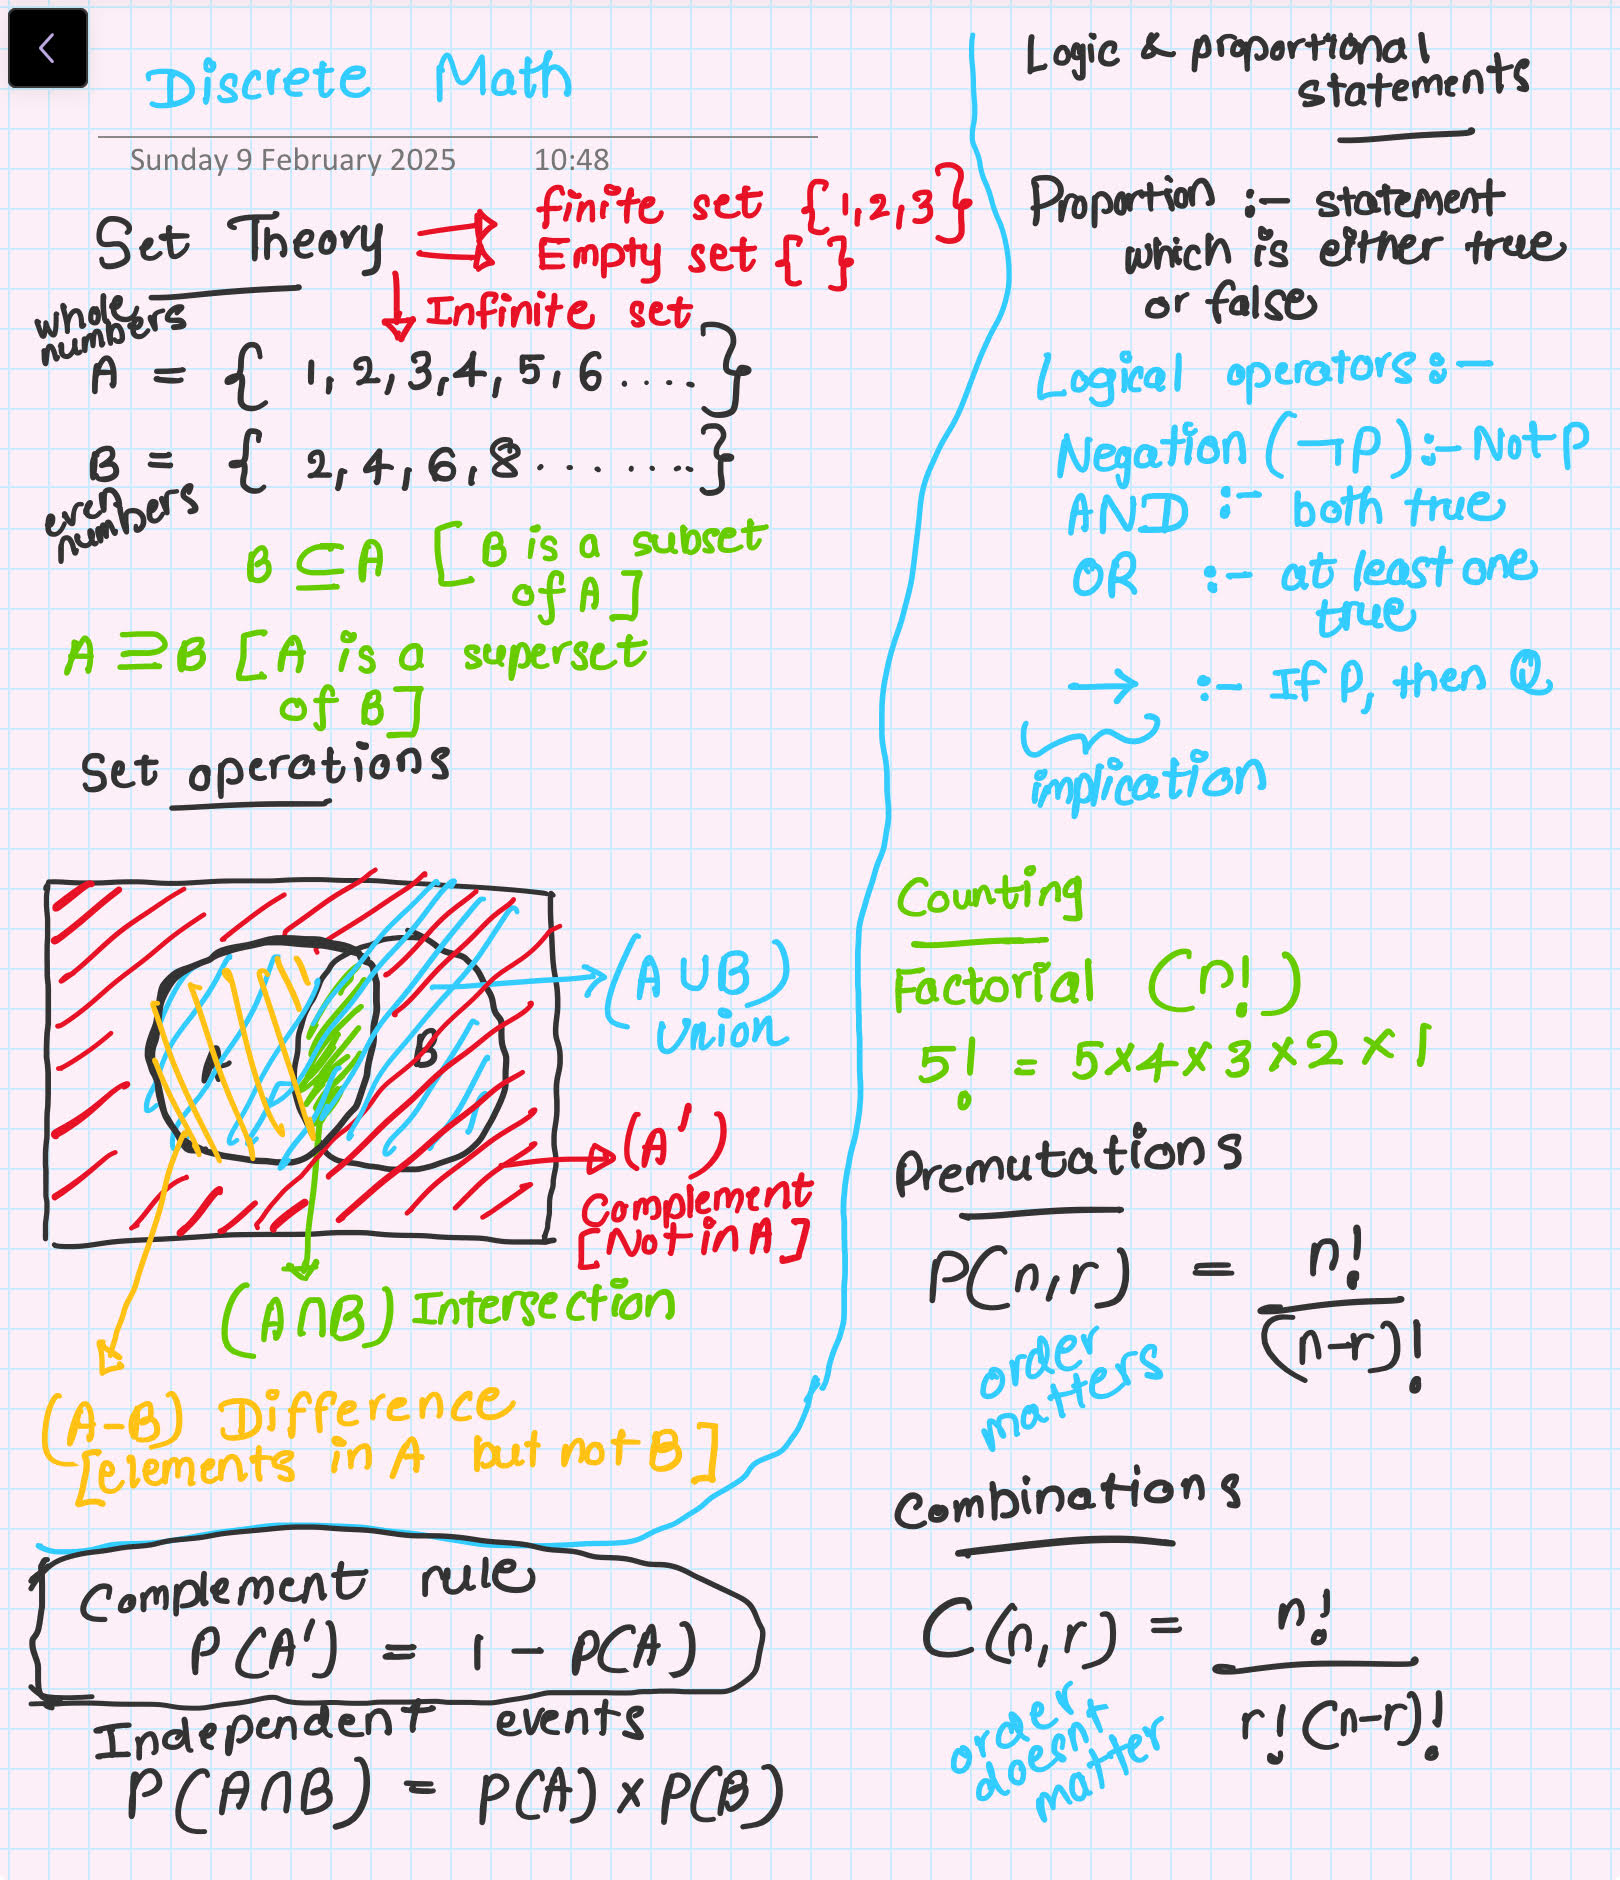 Discrete Math
Sunday 9 February 2025 10:48
Set Theory
finite set {1,2,3}
Empty set { }
Infinite set
whole
numbers
A = { 1, 2, 3, 4, 5, 6 .... }
B = { 2, 4, 6, 8 ........ }
even
numbers
B ⊆ A [B is a subset
of A]
A ⊇ B [A is a superset
of B]
Set operations
A
B
(A ∪ B)
Union
(A')
Complement
[Not in A]
(A ∩ B) Intersection
(A-B) Difference
[elements in A but not B]
Complement rule
P(A') = 1 - P(A)
Independent events
P(A ∩ B) = P(A) x P(B)
Logic & proportional
statements
Proportion :- statement
which is either true
or false
Logical operators :-
Negation (¬p) :- Not p
AND :- both true
OR :- at least one
true
→ :- If P, then Q
implication
Counting
Factorial (n!)
5! = 5 x 4 x 3 x 2 x 1
Premutations
P(n,r) = n!
(n-r)!
order
matters
Combinations
C(n,r) = n!
r! (n-r)!
order
doesnt
matter